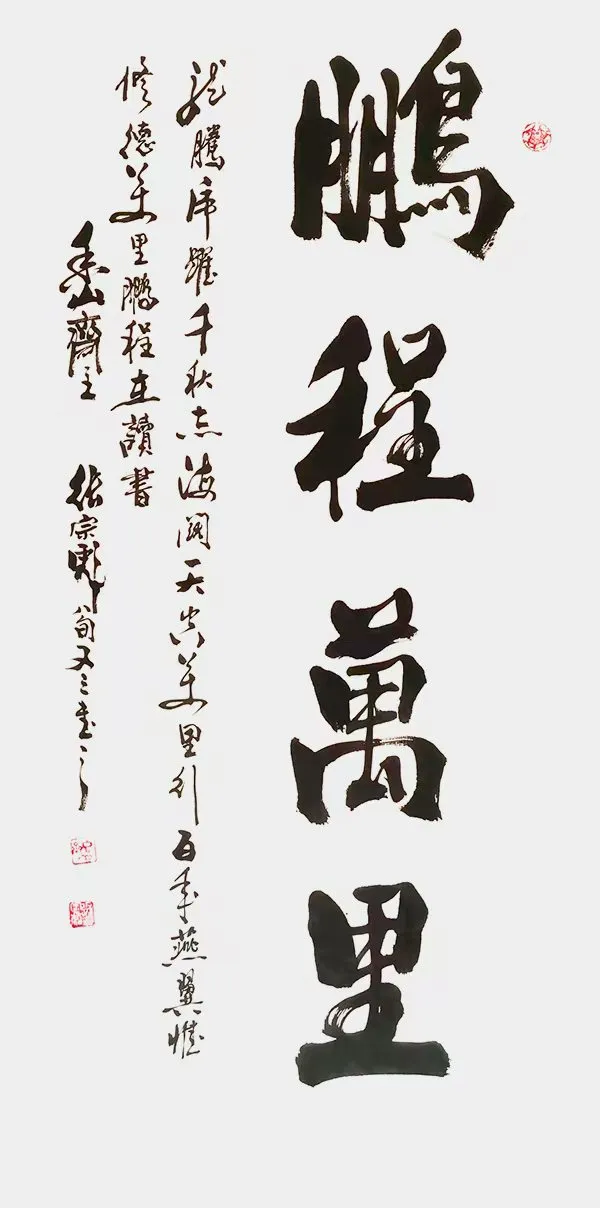 鵬程萬里
龍騰虎躍千秋志海闊天空萬里行百年燕翼惟
修德萬里鵬程在讀書
齋主 張宗彪八旬又三書之